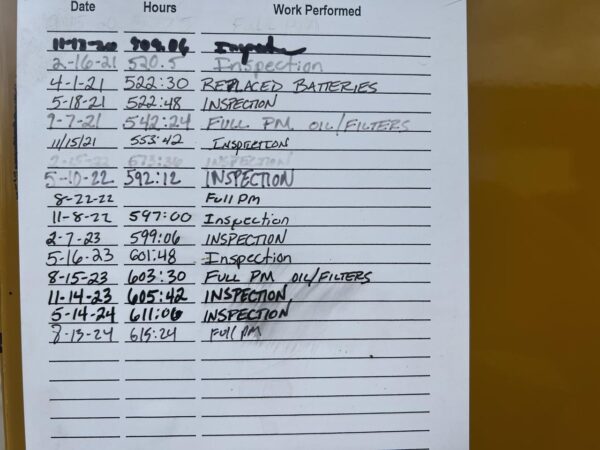 Date Hours Work Performed
11-17-20 509.06 Inspection
2-16-21 520.5 Inspection
4-1-21 522:30 REPLACED BATTERIES
5-18-21 522:48 INSPECTION
9-7-21 542:24 FULL PM OIL/FILTERS
11/15/21 553:42 INSPECTION
2-15-22 573:36 INSPECTION
5-10-22 592:12 INSPECTION
8-22-22 Full PM
11-8-22 597:00 Inspection
2-7-23 599:06 INSPECTION
5-16-23 601:48 Inspection
8-15-23 603:30 FULL PM OIL/FILTERS
11-14-23 605:42 INSPECTION
5-14-24 611:06 INSPECTION
8-13-24 615:24 Full PM